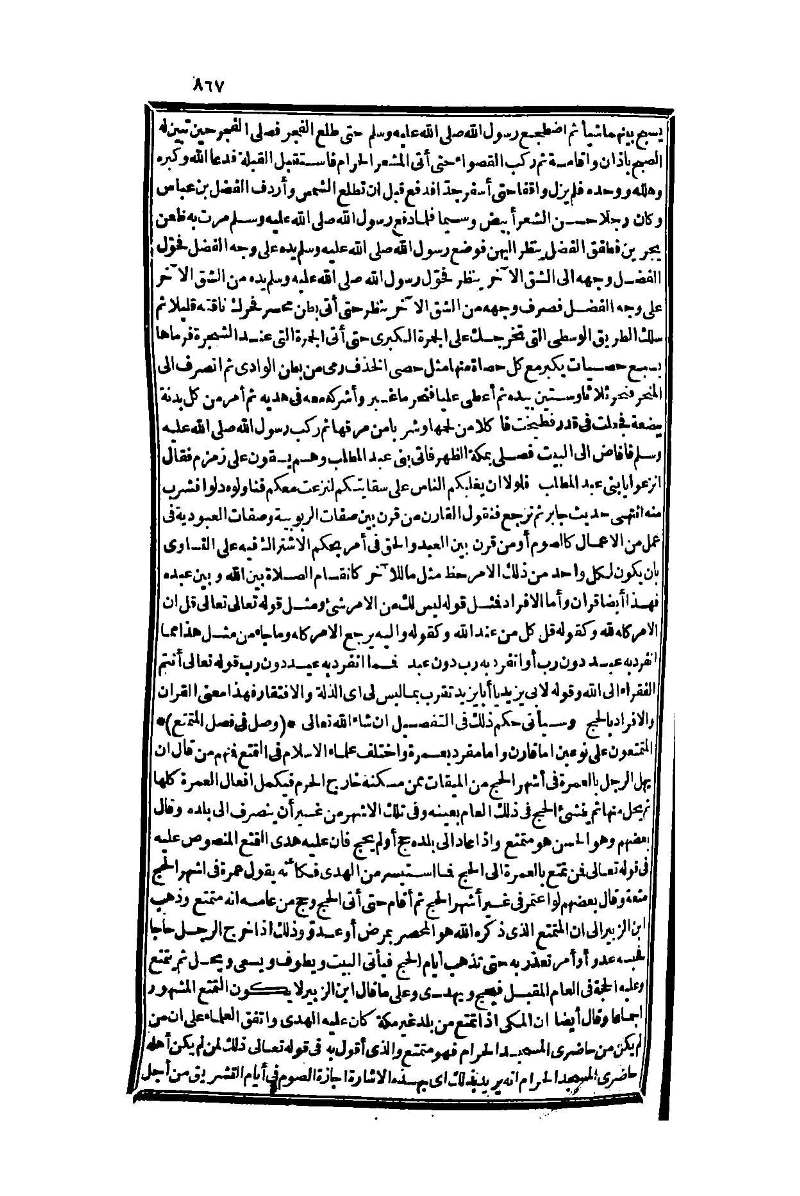 ٨٦٧
يسبح بينهما شيأ ثم اضطجع رسول الله صلى الله عليه وسلم حتى طلع الفجر فصلى الفجر حين تبين له
الصبح باذان واقامة ثم ركب القصواء حتى أتى المشعر الحرام فاستقبل القبلة فدعا الله وكبره
وهلله ووحده فلم يزل واقفا حتى أسفر جدا فدفع قبل ان تطلع الشمس وأردف الفضل بن عباس
وكان رجلا حسن الشعر أبيض وسيما فلما دفع رسول الله صلى الله عليه وسلم مرت به ظعن
يجرين فطفق الفضل ينظر اليهن فوضع رسول الله صلى الله عليه وسلم يده على وجه الفضل فحوّل
الفضل وجهه الى الشق الآخر ينظر فحوّل رسول الله صلى الله عليه وسلم يده من الشق الآخر
على وجه الفضل فصرف وجهه من الشق الآخر ينظر حتى أتى بطن محسر فحرك ناقته قليلا ثم
سلك الطريق الوسطى التى تخرجك على الجمرة الكبرى حتى أتى الجمرة التى عند الشجرة فرماها
بسبع حصيات يكبر مع كل حصاة منها مثل حصى الخذف رمى من بطن الوادى ثم انصرف الى
المنحر فنحر ثلاثا وستين بيده ثم أعطى عليا فنحر ما غبر وأشركه معه فى هديه ثم أمر من كل بدنة
ببضعة فجعلت فى قدر فطبخت فاكلا من لحمها وشربا من مرقها ثم ركب رسول الله صلى الله عليه
وسلم فافاض الى البيت فصلى بمكة الظهر فاتى بنى عبد المطلب وهم يسقون على زمزم فقال
انزعوا يا بنى عبد المطلب فلولا ان يغلبكم الناس على سقايتكم لنزعت معكم فناولوه دلوا فشرب
منه انتهى حديث جابر ثم نرجع فنقول القارن من قرن بين صفات الربوبية وصفات العبودية فى
عمل من الاعمال كالصوم أو من قرن بين العبد والحق فى أمر بحكم الاشتراك فيه على التساوى
بان يكون لكل واحد من ذلك الامر حظ مثل ما للآخر كانقسام الصلاة بين الله وبين عبده
فهذا أيضا قران وأما الافراد فمثل قوله ليس لك من الامر شئ ومثل قوله تعالى قل ان
الامر كله لله وكقوله قل كل من عند الله وكقوله واليه يرجع الامر كله وما جاء من مثل هذا مما
انفرد به عبد دون رب أو انفرد به رب دون عبد فمما انفرد به عبد دون رب قوله تعالى أنتم
الفقراء الى الله وقوله لابى يزيد يا أبا يزيد تقرب بما ليس لى اى الذلة والافتقار فهذا معنى القران
والافراد بالحج وسيأتى حكم ذلك فى التفصيل ان شاء الله تعالى *(وصل فى فصل المتمتع)*
المتمتعون على نوعين اما قارن واما مفرد بعمرة واختلف علماء الاسلام فى التمتع فمنهم من قال ان
يهل الرجل بالعمرة فى أشهر الحج من الميقات ممن مسكنه خارج الحرم فيكمل افعال العمرة كلها
ثم يحل منها ثم ينشئ الحج فى ذلك العام بعينه وفى تلك الاشهر من غير أن ينصرف الى بلده وقال
بعضهم وهو الحسن هو متمتع واذا عاد الى بلده حج أو لم يحج فان عليه هدى التمتع المنصوص عليه
فى قوله تعالى فمن تمتع بالعمرة الى الحج فما استيسر من الهدى فكأنه يقول عمرة فى اشهر الحج
متعة وقال بعضهم لو اعتمر فى غير أشهر الحج ثم أقام حتى أتى الحج وحج من عامه انه متمتع وذهب
ابن الزبير الى ان المتمتع الذى ذكره الله هو المحصر بمرض أو عدو وذلك اذا خرج الرجل حاجا
فحبسه عدو أو أمر تعذر به حتى تذهب أيام الحج فيأتى البيت ويطوف ويسعى ويحل ثم يتمتع
وعليه الحجة فى العام المقبل فيحج ويهدى وعلى ما قال ابن الزبير لا يكون التمتع المشهور
اجماعا وقال أيضا ان المكى اذا تمتع من بلد غير مكة كان عليه الهدى واتفق العلماء على ان من
لم يكن من حاضرى المسجد الحرام فهو متمتع والذى أقول به فى قوله تعالى ذلك لمن لم يكن أهله
حاضرى المسجد الحرام انه يريد بذلك اى بهذه الاشارة اجازة الصوم فى أيام التشريق من أجل